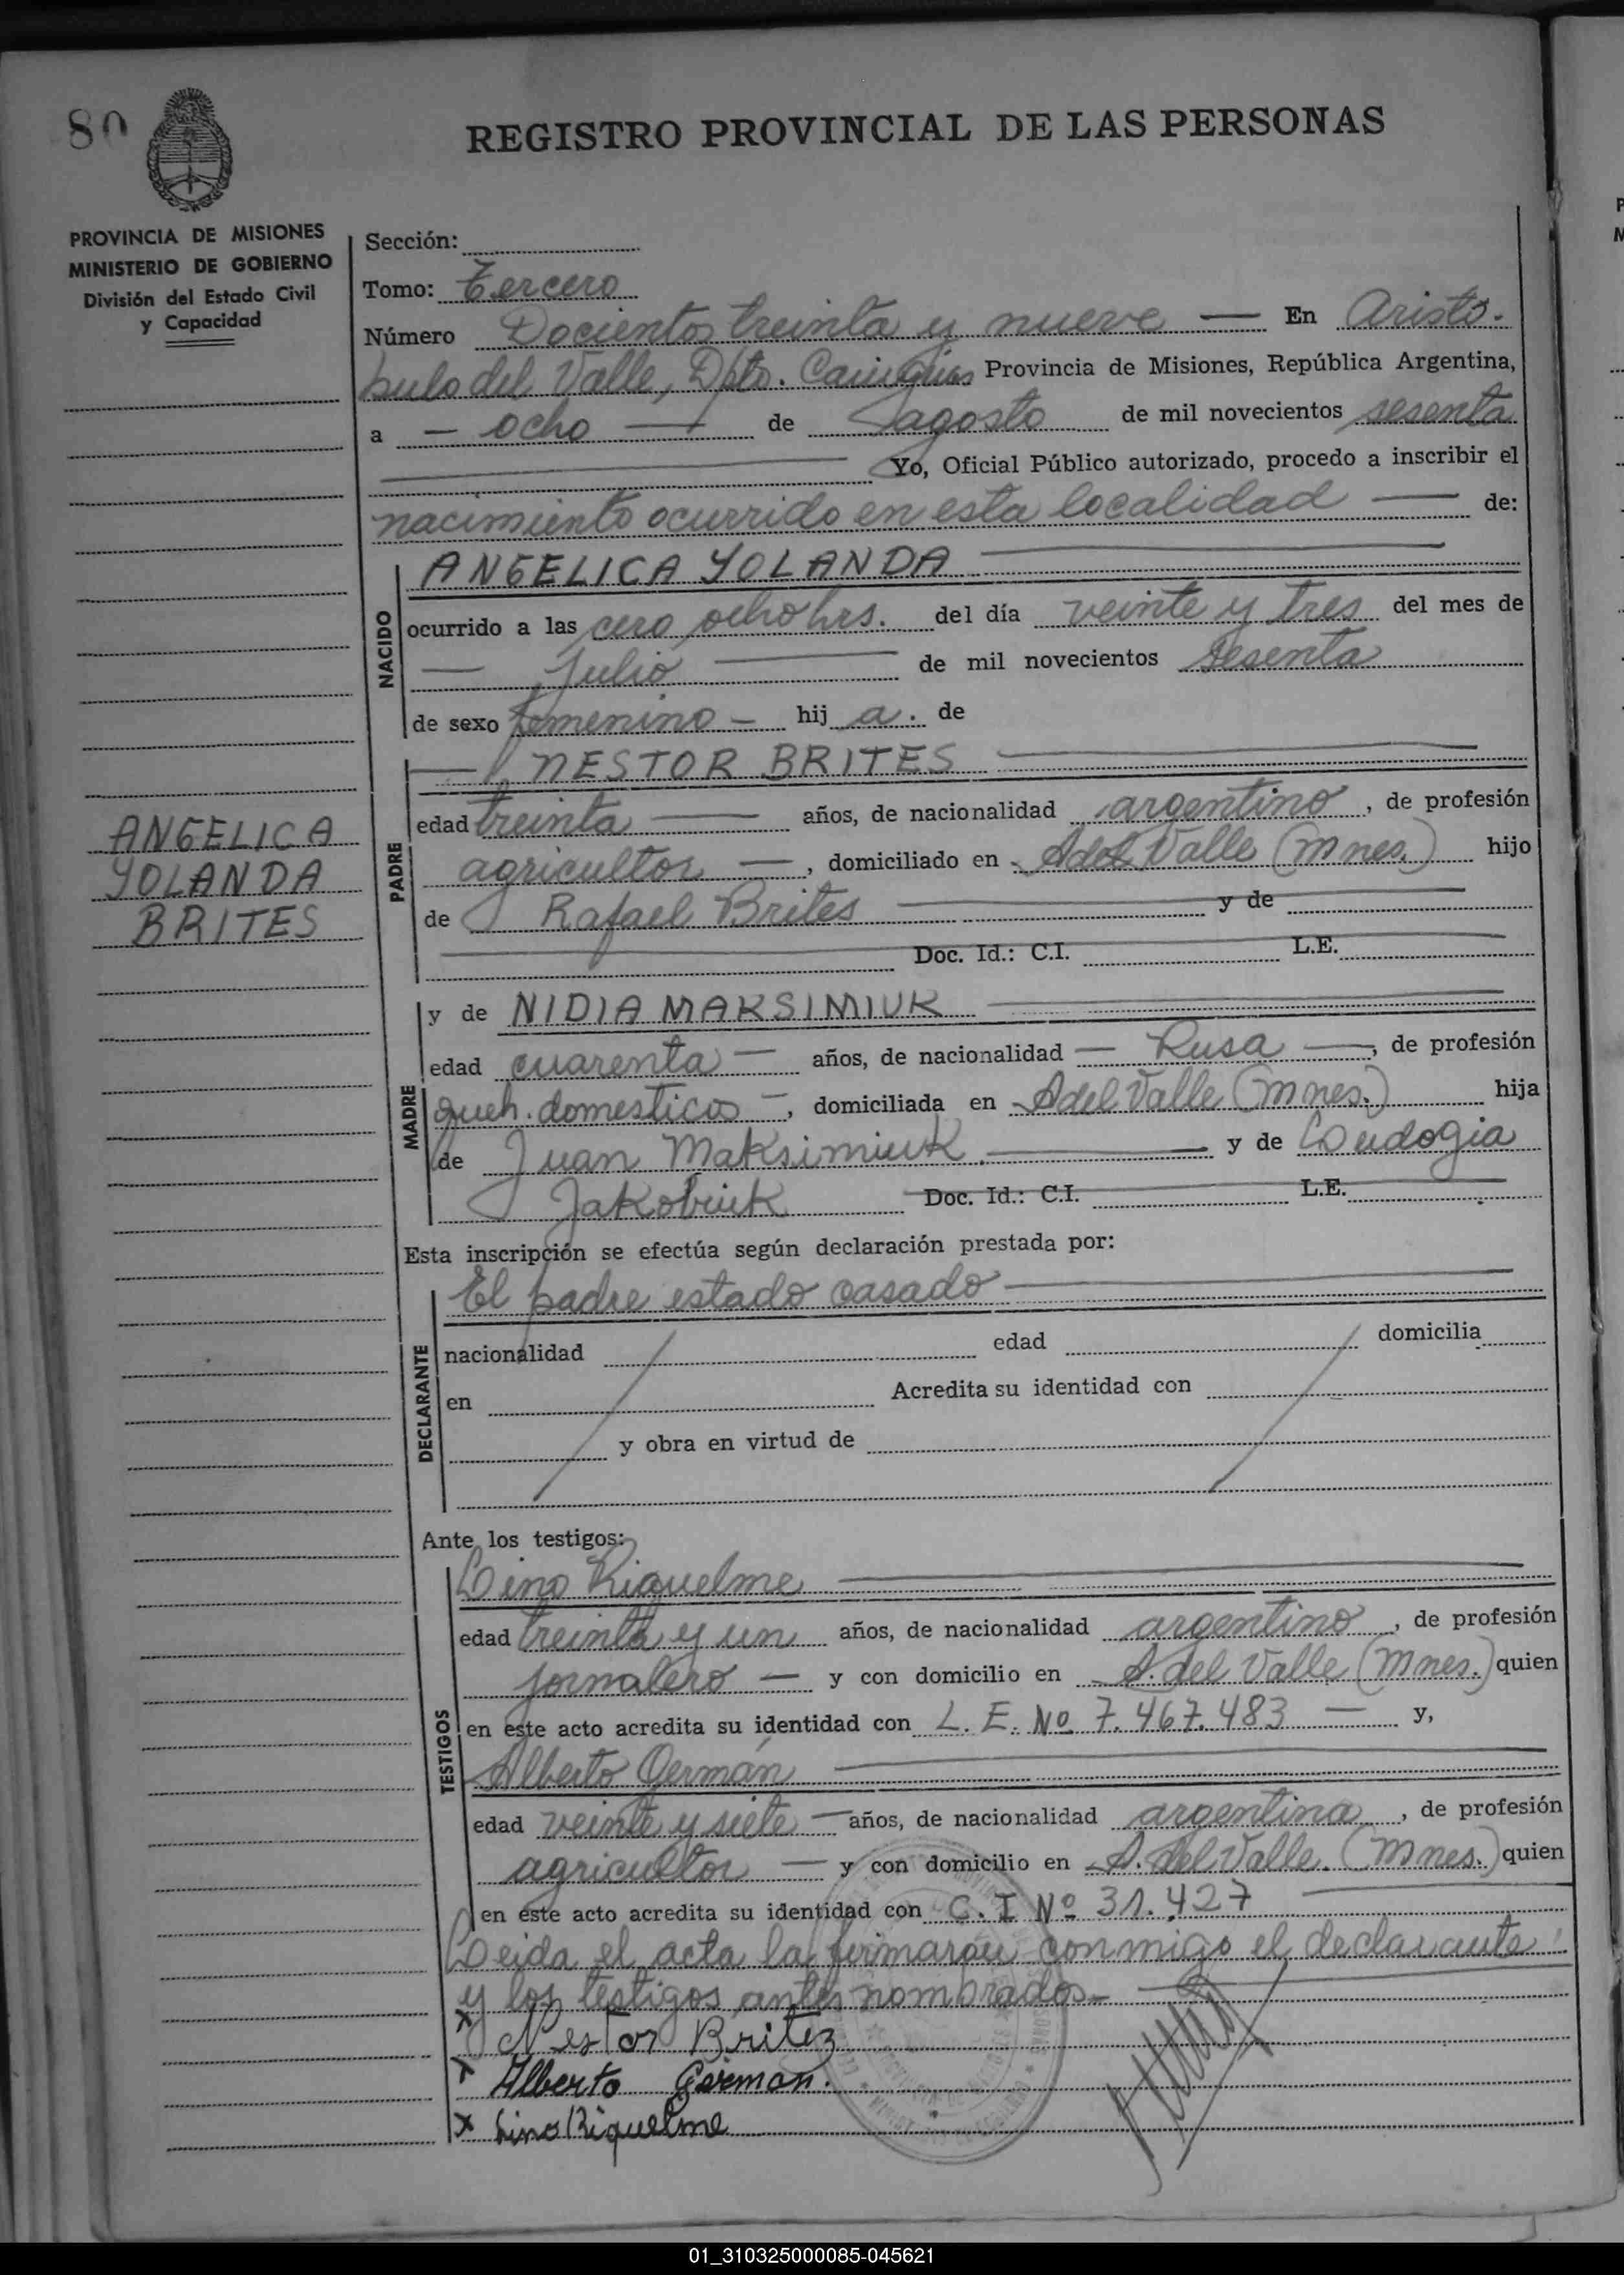 80
REGISTRO PROVINCIAL DE LAS PERSONAS
PROVINCIA DE MISIONES
MINISTERIO DE GOBIERNO
División del Estado Civil
y Capacidad
Sección:
Tomo: Tercero
Número Docientos treinta y nueve — En Aristo-
bulo del Valle, Dpto. Cainguas Provincia de Misiones, República Argentina,
a — ocho — de agosto de mil novecientos sesenta
Yo, Oficial Público autorizado, procedo a inscribir el
nacimiento ocurrido en esta localidad — de:
NACIDO
ANGELICA YOLANDA
ocurrido a las cero ocho hrs. del día veinte y tres del mes de
— Julio — de mil novecientos sesenta
de sexo femenino — hij a. de
ANGELICA
YOLANDA
BRITES
PADRE
— NESTOR BRITES —
edad treinta — años, de nacionalidad argentino, de profesión
agricultor —, domiciliado en A del Valle (Mnes.) hijo
de Rafael Brites — y de
Doc. Id.: C.I. L.E.
MADRE
y de NIDIA MAKSIMIUK —
edad cuarenta — años, de nacionalidad — Rusa —, de profesión
queh. domesticos —, domiciliada en A del Valle (Mnes.) hija
de Juan Maksimiuk — y de Eudogia
Jakobiuk Doc. Id.: C.I. L.E.
Esta inscripción se efectúa según declaración prestada por:
DECLARANTE
El padre estado casado —
nacionalidad edad domicilia
en Acredita su identidad con
y obra en virtud de
Ante los testigos:
TESTIGOS
Lino Riquelme —
edad treinta y un años, de nacionalidad argentino, de profesión
jornalero — y con domicilio en A. del Valle (Mnes.) quien
en este acto acredita su identidad con L. E. Nº 7.467.483 — y,
Alberto Germán —
edad veinte y siete — años, de nacionalidad argentina, de profesión
agricultor — y con domicilio en A. del Valle. (Mnes.) quien
en este acto acredita su identidad con C. I Nº 31.427 —
Leida el acta la firmarou conmigo el declarante
y los testigos antes nombrados.—
x Nestor Britez
x Alberto German.
x Lino Riquelme
01_310325000085-045621